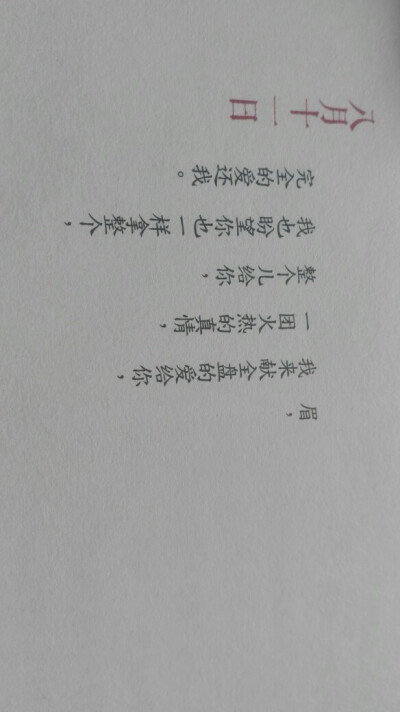 眉，
我来献全盘的爱给你，
一团火热的真情，
整个儿给你，
我也盼望你也一样拿整个，
完全的爱还我。
八月十一日